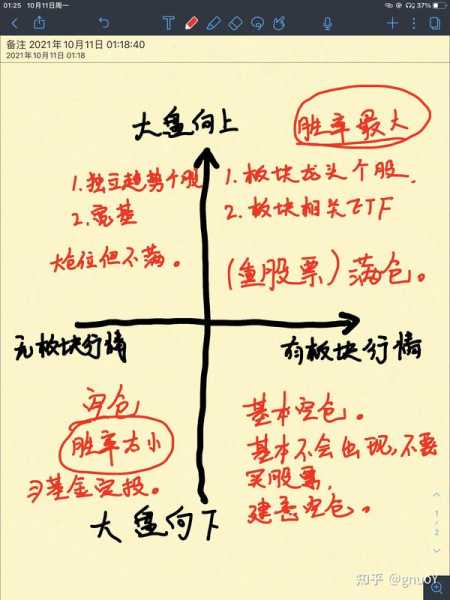 01:25 10月11日周一
37%
备注 2021年10月11日 01:18:40
2021年10月11日 01:18
大盘向上
胜率最大
1.独立趋势个股
2.宽基
大仓位但不满。
1.板块龙头个股.
2.板块相关ETF
(重股票)满仓。
无板块行情
有板块行情
空仓
胜率太小
习基金定投。
基本空仓。
基本不会出现,不要
买股票,
建意空仓。
大盘向下
1/2
知乎 @gnuoY